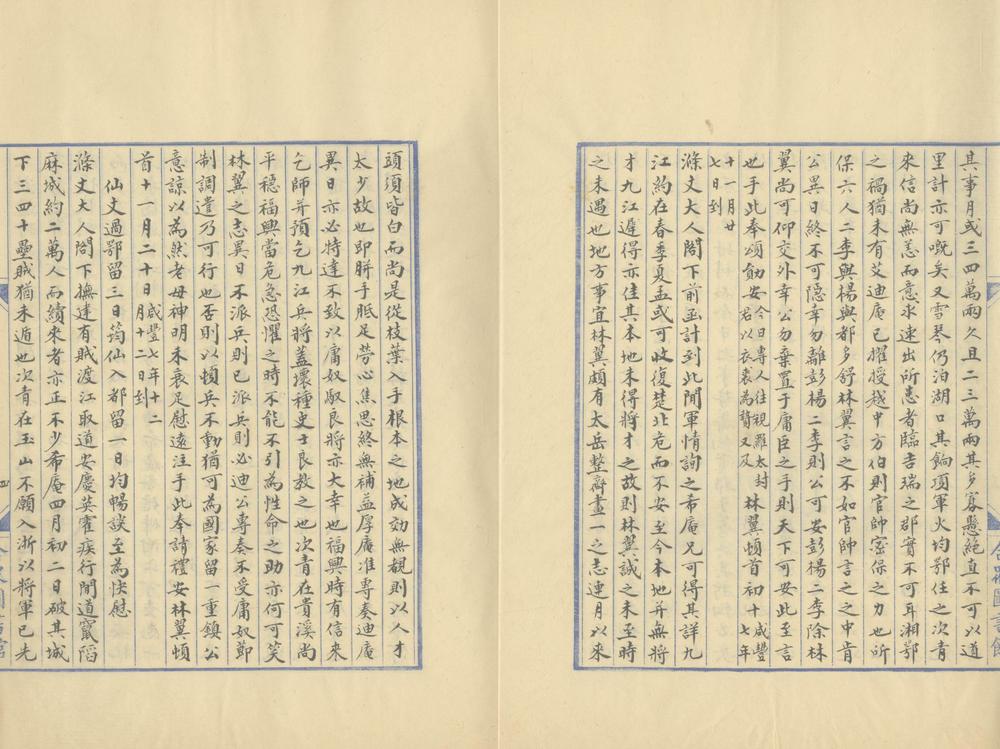 其事月或三四萬兩久且二三萬兩其多寡懸絕直不可以道
里計亦可嘅矣又雪琴仍泊湖口其餉項軍火均鄂任之次青
來信尚無恙而意求速出所患者臨吉瑞之郡實不可耳湘鄂
之禍猶未有艾迪庵已擢授越中方伯則官帥密保之力也所
保六人二李與楊與都多舒林翼言之不如官帥言之之中肯
公異日終不可隱幸勿離彭楊二李則公可安彭楊二李除林
翼尚可仰交外幸公勿棄置于庸臣之手則天下可安此至言
也手此奉頌勛安今日專人往視羅太封君以衣裘為贄又及 林翼頓首初十咸豐七年
十一月廿七日到
滌丈大人閤下前函計到此間軍情詢之希庵兄可得其詳九
江約在春季夏孟或可收復楚北危而不安至今本地并無將
才九江遲得亦佳其本地未得將才之故則林翼誠之未至時
之未遇也地方事宜林翼頗有太岳整齊畫一之志連月以來
頭須皆白而尚是從枝葉入手根本之地成効無覩則以人才
太少故也即胼手胝足勞心焦思終無補益厚庵准專奏迪庵
異日亦必特達不致以庸奴馭良將亦大幸也福興時有信來
乞師并預乞九江兵將蓋壞種史士良教之也次青在貴溪尚
平穩福興當危急恐懼之時不能不引為性命之助亦何可笑
林翼之志異日不派兵則已派兵則必迪公專奏不受庸奴節
制調遣乃可行也否則以頓兵不動猶可為國家留一重鎮公
意諒以為然老母神明未衰足慰遠注手此奉請禮安林翼頓
首十一月二十日咸豐七年十二月十二日到
仙丈過鄂留三日筠仙入都留一日均暢談至為快慰
滌丈大人閤下撫建有賊渡江取道安慶英霍疾行間道竄陷
麻城約二萬人而續來者亦正不少希庵四月初二日破其城
下三四十壘賊猶未遁也次青在玉山不願入浙以將軍已先
四